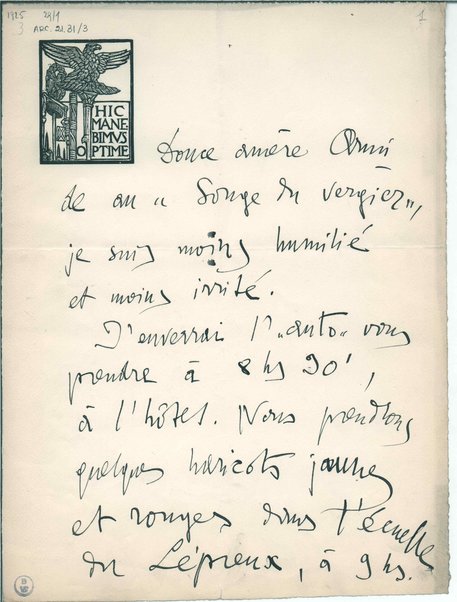 1925 29/1
3 ARC. 21.31/3
1
HIC
MANE
BIMVS
OPTIME
Douce amère
de au « Songe du vergier »,
je suis moins humilié
et moins irrité.
J'enverrai l'"auto" vous
prendre à 8 hs 30',
à l'hôtel. Nous prendrons
quelques haricots jaunes
et rouges dans l'écuelle
du Lépreux, à 9 hs.